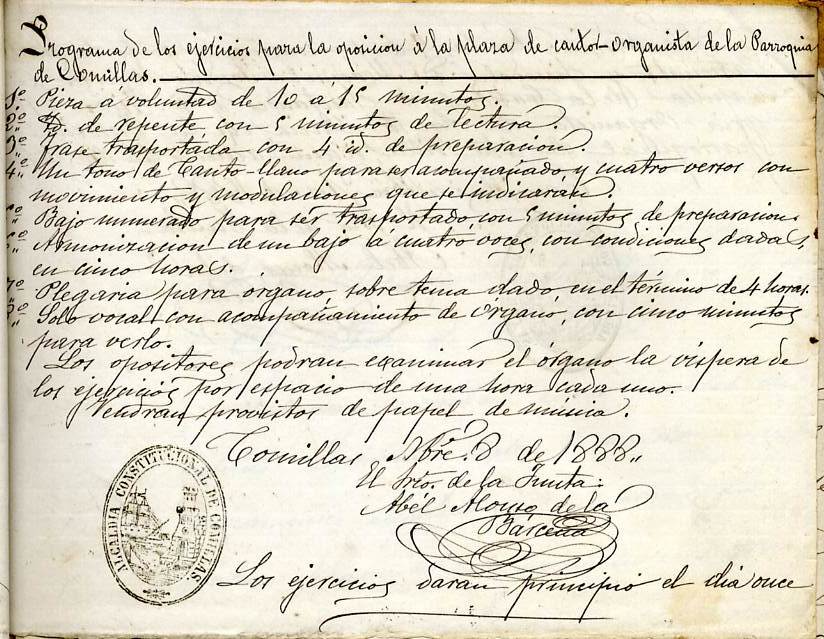 Programa de los ejercicios para la oposicion á la plaza de cantor-organista de la Parroquia
de Comillas.
1º Pieza á voluntad de 10 á 15 minutos.
2º Id. de repente con 5 minutos de lectura.
3º Frase trasportada con 4 id. de preparacion.
4º Un tono de Canto-llano para ser acompañado, y cuatro versos con
movimiento y modulaciones que se indicarán.
5º Bajo numerado para ser trasportado con 5 minutos de preparacion.
6º Armonizacion de un bajo á cuatro voces, con condiciones dadas,
en cinco horas.
7º Plegaria para órgano, sobre tema dado en el término de 4 horas.
8º Solo vocal con acompañamiento de órgano, con cinco minutos
para verlo.
Los opositores podran examinar el órgano la víspera de
los ejercicios por espacio de una hora cada uno.
Vendran provistos de papel de música.
Comillas Nbre. 8 de 1888.
El Srio. de la Junta:
Abél Alonso de la
Bárcena
ALCALDIA CONSTITUCIONAL DE COMILLAS.
Los ejercicios darán principio el día once